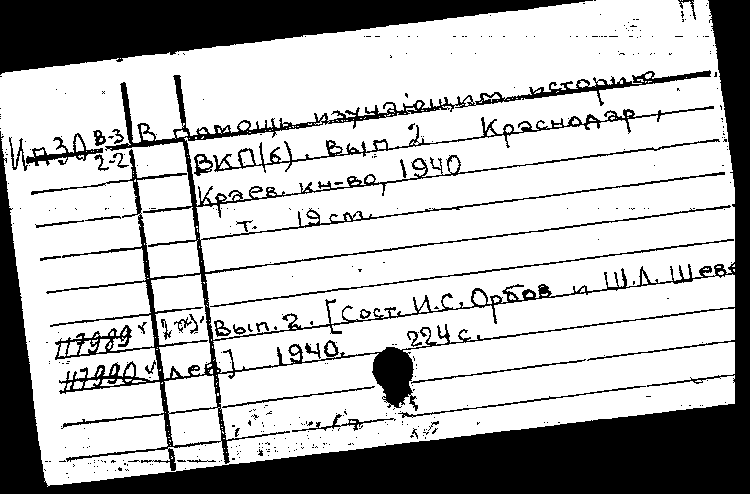 П
Ип30 В-3 В помощь изучающим историю
2-2 ВКП(б). Вып 2 Краснодар,
Краев. кн-во, 1940
т. 19 см.
117989 2 экз. Вып. 2. [Сост. И.С. Орбов и Ш.Л. Шеве
117990 лев]. 1940. 224 с.